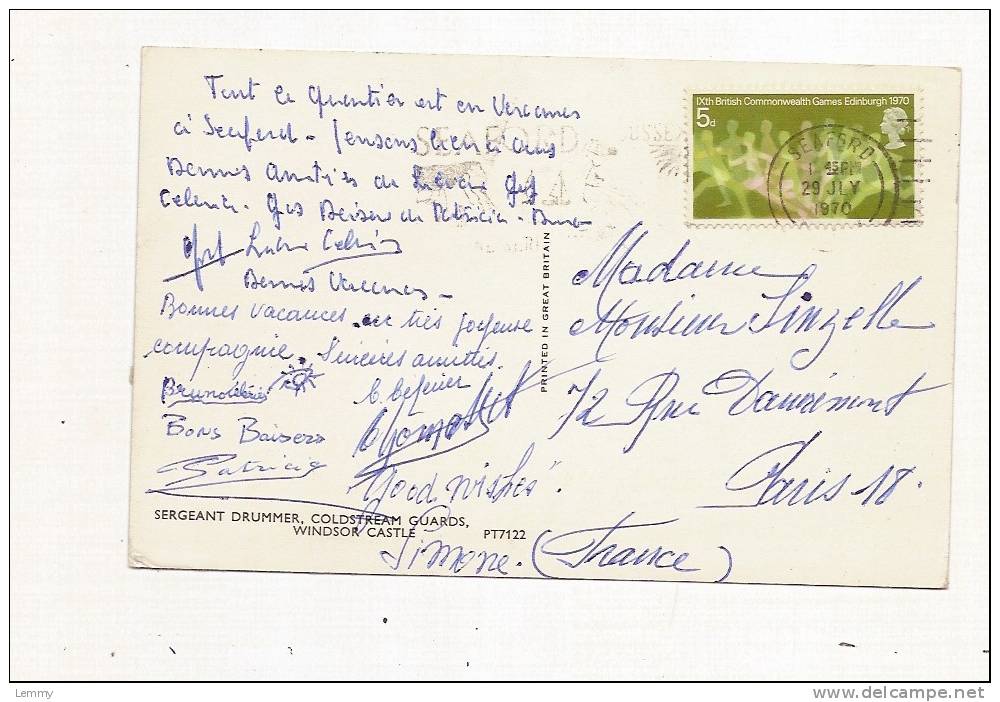 Tout le quartier est en Vacances
à Seaford - Pensons bien à vous
Bonnes Amitiés de
Gros Baisers de Patricia - Bruno
Bonnes Vacances -
Bonnes vacances en très joyeuse
compagnie. Sincères amitiés.
Bruno
Bons Baisers
Patricia
Good Wishes
Simone.
SERGEANT DRUMMER, COLDSTREAM GUARDS,
WINDSOR CASTLE PT7122
PRINTED IN GREAT BRITAIN
SEAFORD SUSSEX
IXth British Commonwealth Games Edinburgh 1970
5d
SEAFORD
29 JLY
1970
Madame
Monsieur Linzelle
72 Rue Damrémont
Paris 18.
(France)
Lemmy
delcampe.net